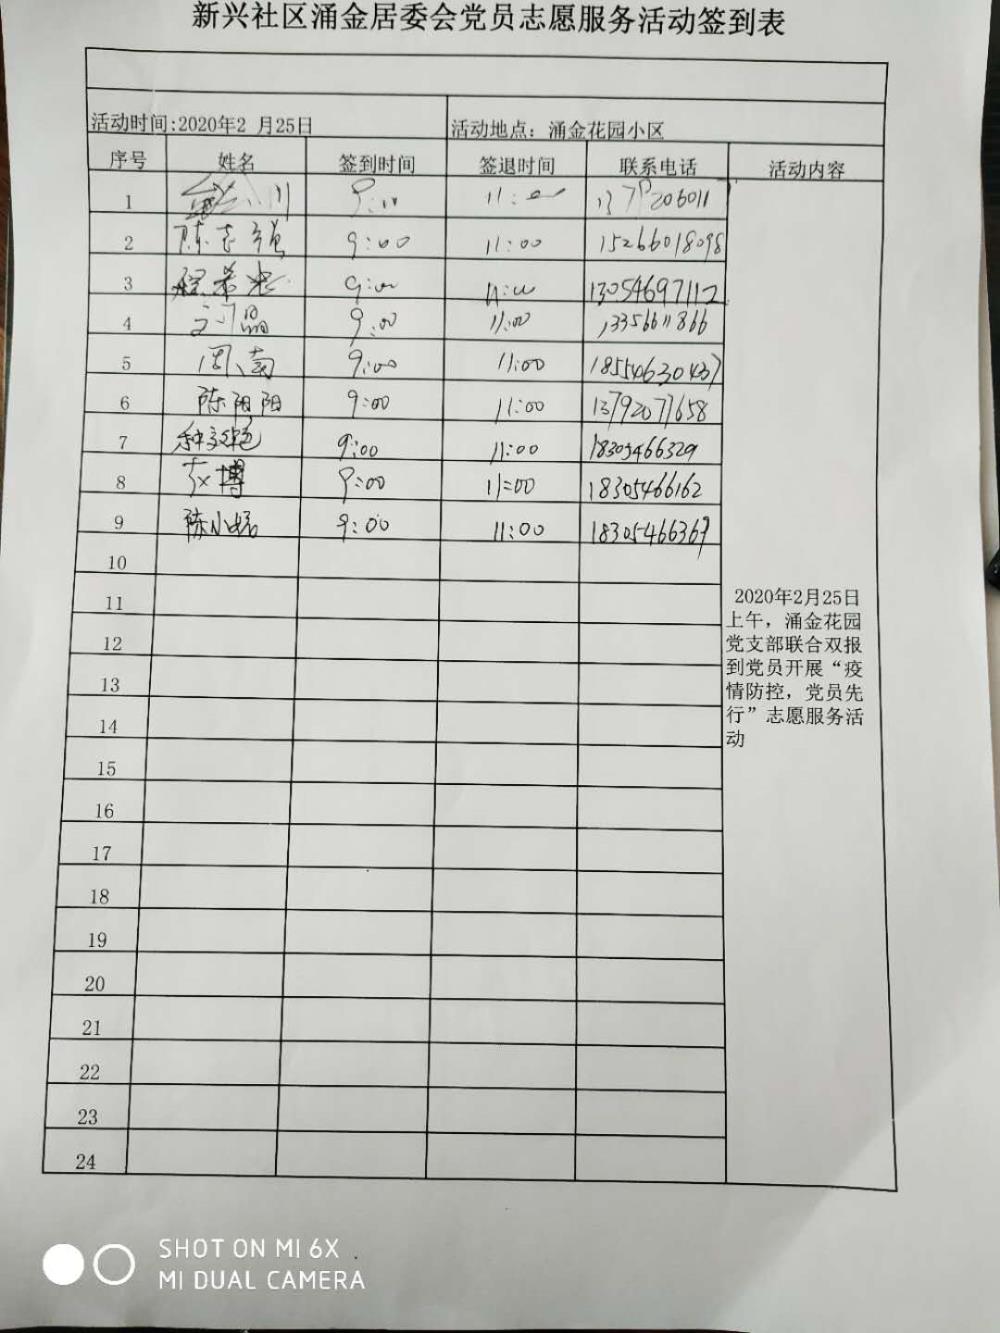 新兴社区涌金居委会党员志愿服务活动签到表
活动时间:2020年2 月25日 活动地点：涌金花园小区
序号 姓名 签到时间 签退时间 联系电话 活动内容
1 9:00 11:00
2 陈志强 9:00 11:00 15266018098
3 9:00 11:00 13054697112
4 9:00 11:00 13356611866
5 周南 9:00 11:00 18554630437
6 陈阳阳 9:00 11:00 13792077658
7 9:00 11:00 18305466329
8 赵博 9:00 11:00 18305466162
9 陈小娟 9:00 11:00 18305466369
10
11
12
13
14
15
16
17
18
19
20
21
22
23
24
2020年2月25日
上午，涌金花园
党支部联合双报
到党员开展“疫
情防控，党员先
行”志愿服务活
动
SHOT ON MI 6X
MI DUAL CAMERA